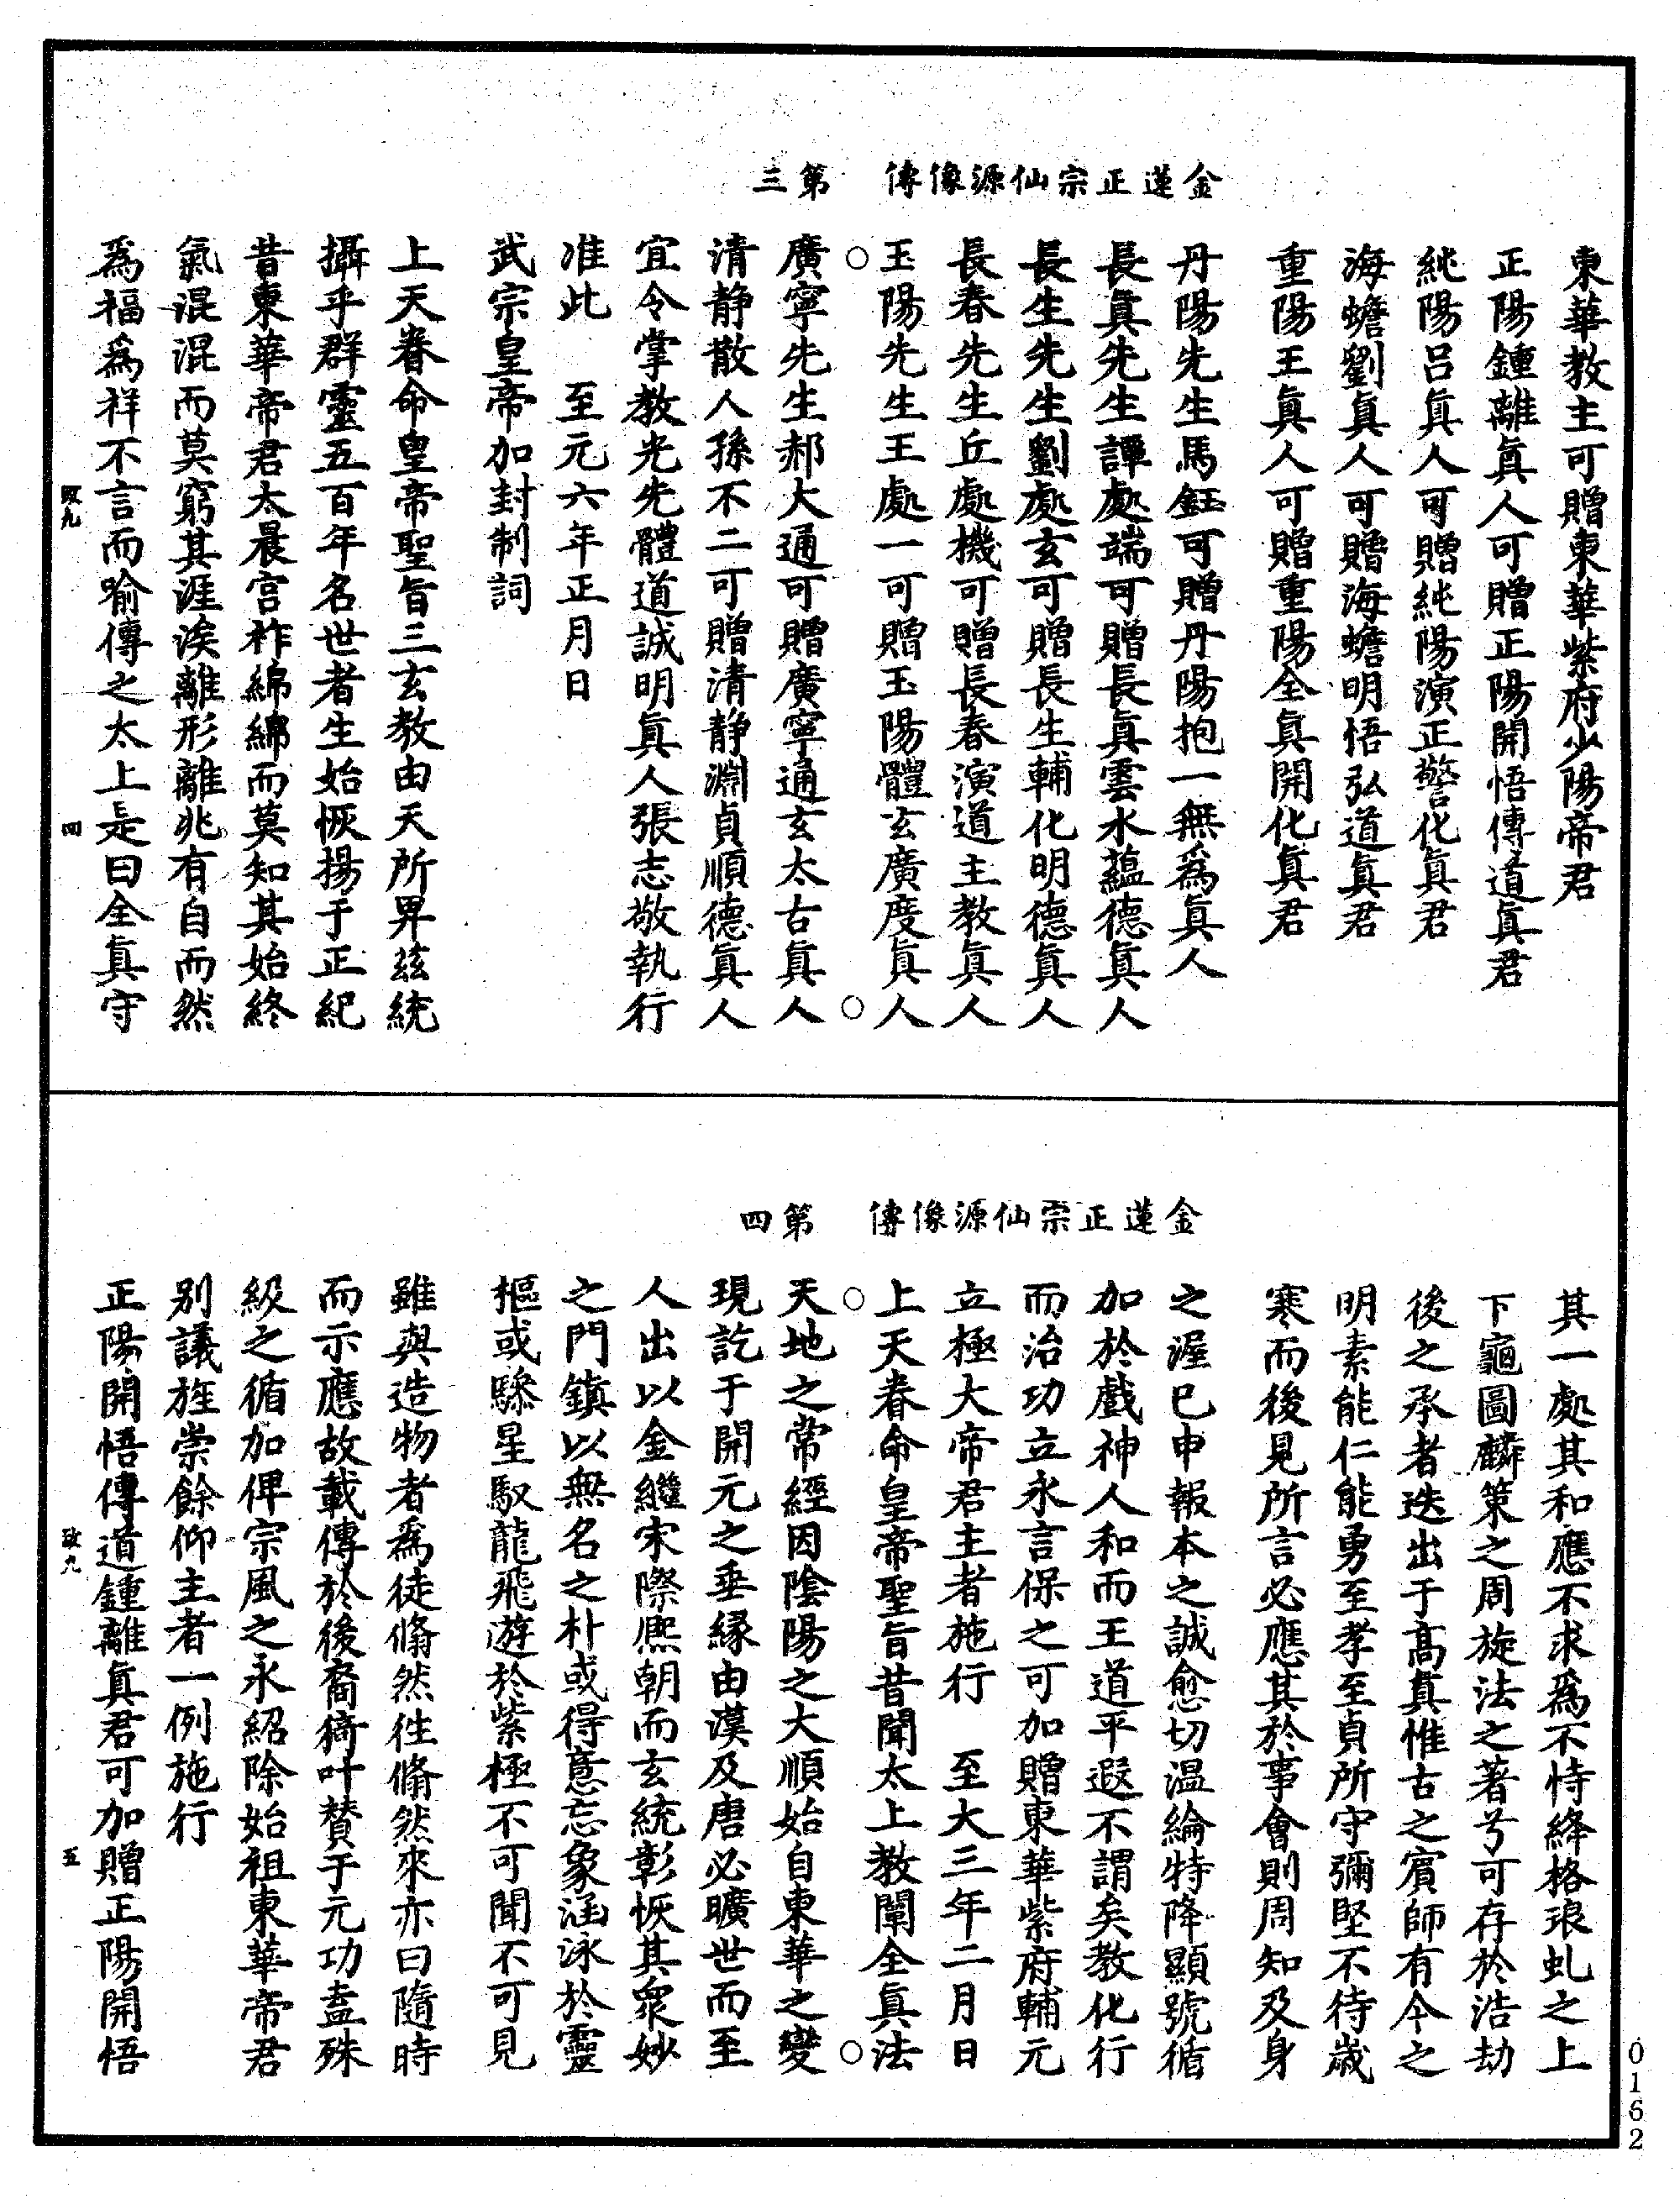 金蓮正宗仙源像傳　第三
東華教主可贈東華紫府少陽帝君
正陽鍾離眞人可贈正陽開悟傳道眞君
純陽呂眞人可贈純陽演正警化眞君
海蟾劉眞人可贈海蟾明悟弘道眞君
重陽王眞人可贈重陽全眞開化眞君
丹陽先生馬鈺可贈丹陽抱一無爲眞人
長眞先生譚處端可贈長眞雲水蘊德眞人
長生先生劉處玄可贈長生輔化明德眞人
長春先生丘處機可贈長春演道主教眞人
玉陽先生王處一可贈玉陽體玄廣度眞人
○　○
廣寧先生郝大通可贈廣寧通玄太古眞人
清靜散人孫不二可贈清靜淵貞順德眞人
宜令掌教光先體道誠明眞人張志敬執行
准此　至元六年正月日
武宗皇帝加封制詞
上天眷命皇帝聖旨三玄教由天所畀玆統
攝乎群靈五百年名世者生始恢揚于正紀
昔東華帝君太晨宮祚綿綿而莫知其始終
氣混混而莫窮其涯涘離形離兆有自而然
爲福爲祥不言而喻傳之太上是曰全眞守
致九　四
金蓮正宗仙源像傳　第四
其一處其和應不求爲不恃絳格琅虬之上
下龜圖麟策之周旋法之著兮可存於浩劫
後之承者迭出于高真惟古之賓師有今之
明素能仁能勇至孝至貞所守彌堅不待歲
寒而後見所言必應其於事會則周知及身
之渥已申報本之誠愈切温綸特降顯號循
加於戲神人和而王道平遐不謂矣教化行
而治功立永言保之可加贈東華紫府輔元
立極大帝君主者施行　至大三年二月日
上天眷命皇帝聖旨昔聞太上教闡全眞法
○　○
天地之常經因陰陽之大順始自東華之變
現訖于開元之垂緣由漢及唐必曠世而至
人出以金繼宋際熈朝而玄統彰恢其衆妙
之門鎮以無名之朴或得意忘象涵泳於靈
樞或驂星馭龍飛遊於紫極不可聞不可見
雖與造物者爲徒翛然徃翛然來亦曰隨時
而示應故載傳於後裔猗叶賛于元功盍殊
級之循加俾宗風之永紹除始祖東華帝君
别議旌崇餘仰主者一例施行
正陽開悟傳道鍾離眞君可加贈正陽開悟
致九　五
0162